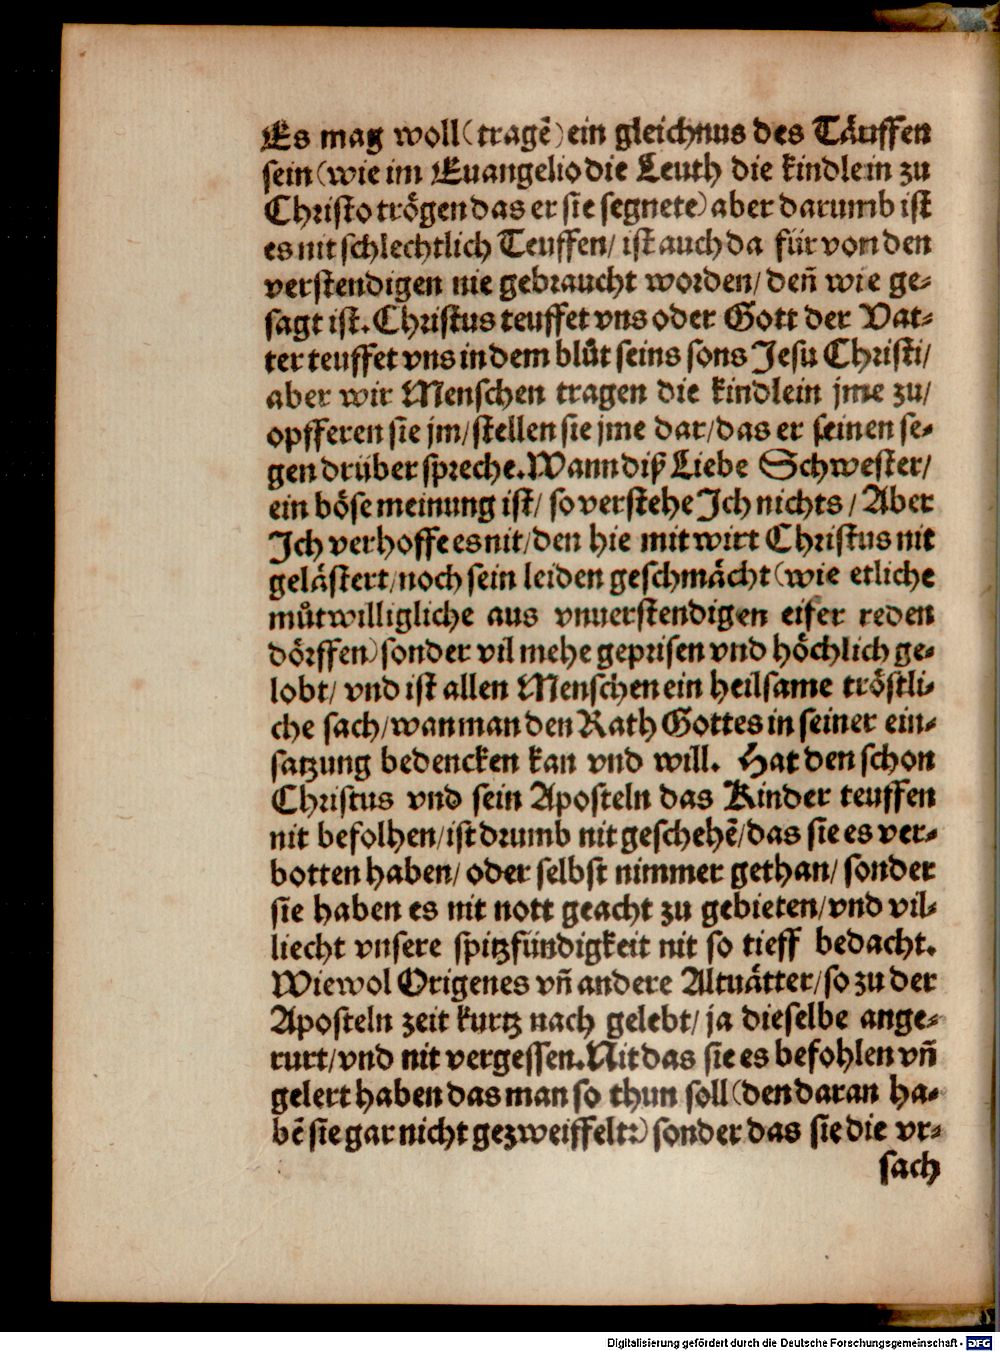 Es mag woll (tragē) ein gleichnus des Täuffen
sein (wie im Euangelio die Leuth die kindlein zu
Christo trögen das er sie segnete) aber darumb ist
es nit schlechtlich Teuffen/ ist auch da für von den
verstendigen nie gebraucht worden/ deñ wie ge-
sagt ist. Christus teuffet vns oder Gott der Vat-
ter teuffet vns in dem blůt seins sons Jesu Christi/
aber wir Menschen tragen die kindlein jme zu/
opfferen sie jm/ stellen sie jme dar/ das er seinen se-
gen drüber spreche. Wann diß Liebe Schwester/
ein böse meinung ist/ so verstehe Ich nichts/ Aber
Ich verhoffe es nit/ den hie mit wirt Christus nit
gelästert/ noch sein leiden geschmächt (wie etliche
můtwilligliche aus vnuerstendigen eifer reden
dörffen) sonder vil mehe geprisen vnd höchlich ge-
lobt/ vnd ist allen Menschen ein heilsame tröstli-
che sach/ wan man den Rath Gottes in seiner ein-
satzung bedencken kan vnd will. Hat den schon
Christus vnd sein Aposteln das Kinder teuffen
nit befolhen/ ist drumb nit geschehē/ das sie es ver-
botten haben/ oder selbst nimmer gethan/ sonder
sie haben es nit nott geacht zu gebieten/ vnd vil-
liecht vnsere spitzfündigkeit nit so tieff bedacht.
Wiewol Origenes vñ andere Altuätter/ so zu der
Aposteln zeit kurtz nach gelebt/ ja dieselbe ange-
rurt/ vnd nit vergessen. Nit das sie es befohlen vñ
gelert haben das man so thun soll (den daran ha-
bē sie gar nicht gezweiffelt:) sonder das sie die vr-
sach
Digitalisierung gefördert durch die Deutsche Forschungsgemeinschaft - DFG